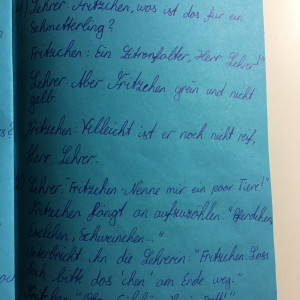 1) Lehrer: Fritzchen, was ist das für ein
Schmetterling?
Fritzchen: Ein Zitronfalter, Herr Lehrer!"
Lehrer: Aber Fritzchen grün und nicht
gelb.
Fritzchen: Velleicht ist er noch nicht reif,
Herr Lehrer.
2) Lehrer: "Fritzchen Nenne mir ein paar Tiere!"
Fritzchen fängt an aufzuzählen: "Pferdchen,
Schweinchen..."
Unterbricht ihn die Lehrerin: "Fritzchen. Lass
doch bitte das 'chen' am Ende weg."